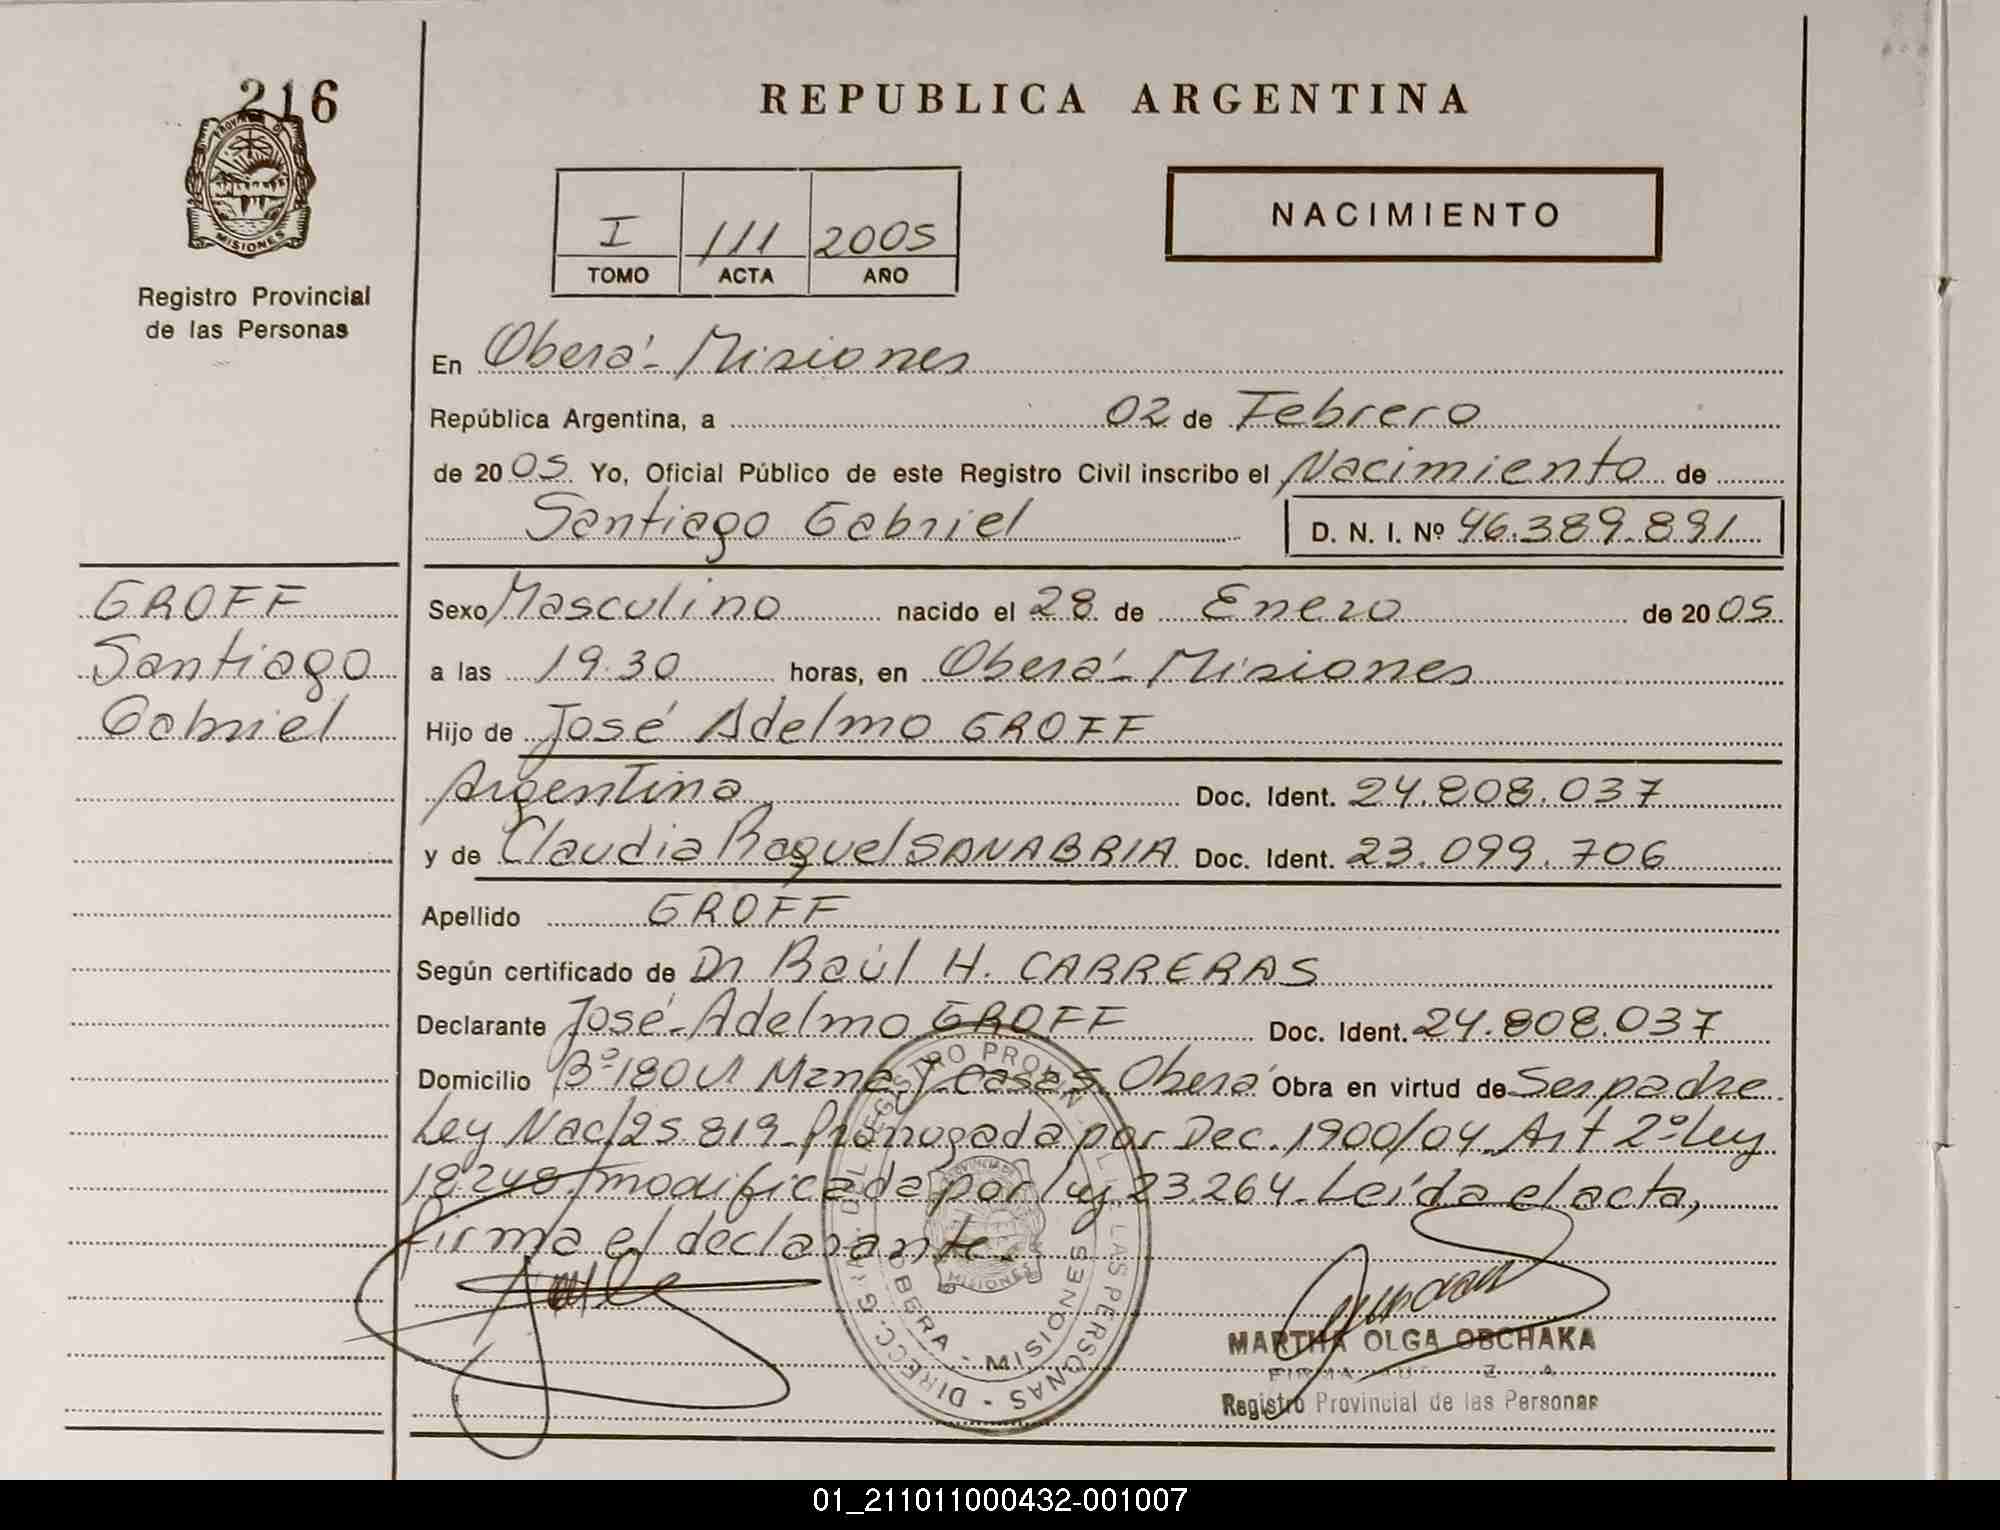 216
PROVINCIA DE
MISIONES
Registro Provincial
de las Personas
REPUBLICA ARGENTINA
I 111 2005
TOMO ACTA AÑO
NACIMIENTO
En Oberá - Misiones
República Argentina, a 02 de Febrero
de 2005 Yo, Oficial Público de este Registro Civil inscribo el Nacimiento de
Santiago Gabriel D. N. I. Nº 46.389.891
GROFF
Santiago
Gabriel
Sexo Masculino nacido el 28 de Enero de 2005
a las 19.30 horas, en Oberá - Misiones
Hijo de José Adelmo GROFF
Argentina Doc. Ident. 24.808.037
y de Claudia Raquel SANABRIA Doc. Ident. 23.099.706
Apellido GROFF
Según certificado de Dr Raúl H. CARRERAS
Declarante José Adelmo GROFF Doc. Ident. 24.808.037
Domicilio Bº 180 Mzna Casa 5 Oberá Obra en virtud de Ser padre
Ley Nac/25.819 - Prorrogada por Dec. 1900/04 - Art 2º Ley
18248 modificada por Ley 23.264 - Leída el acta,
firma el declarante.
DIRECC. GRAL. DEL REGISTRO PROVINCIAL DE LAS PERSONAS
OBERA - MISIONES
PROVINCIA DE
MISIONES
MARTHA OLGA OBCHAKA
FIRMA
Registro Provincial de las Personas
01_211011000432-001007